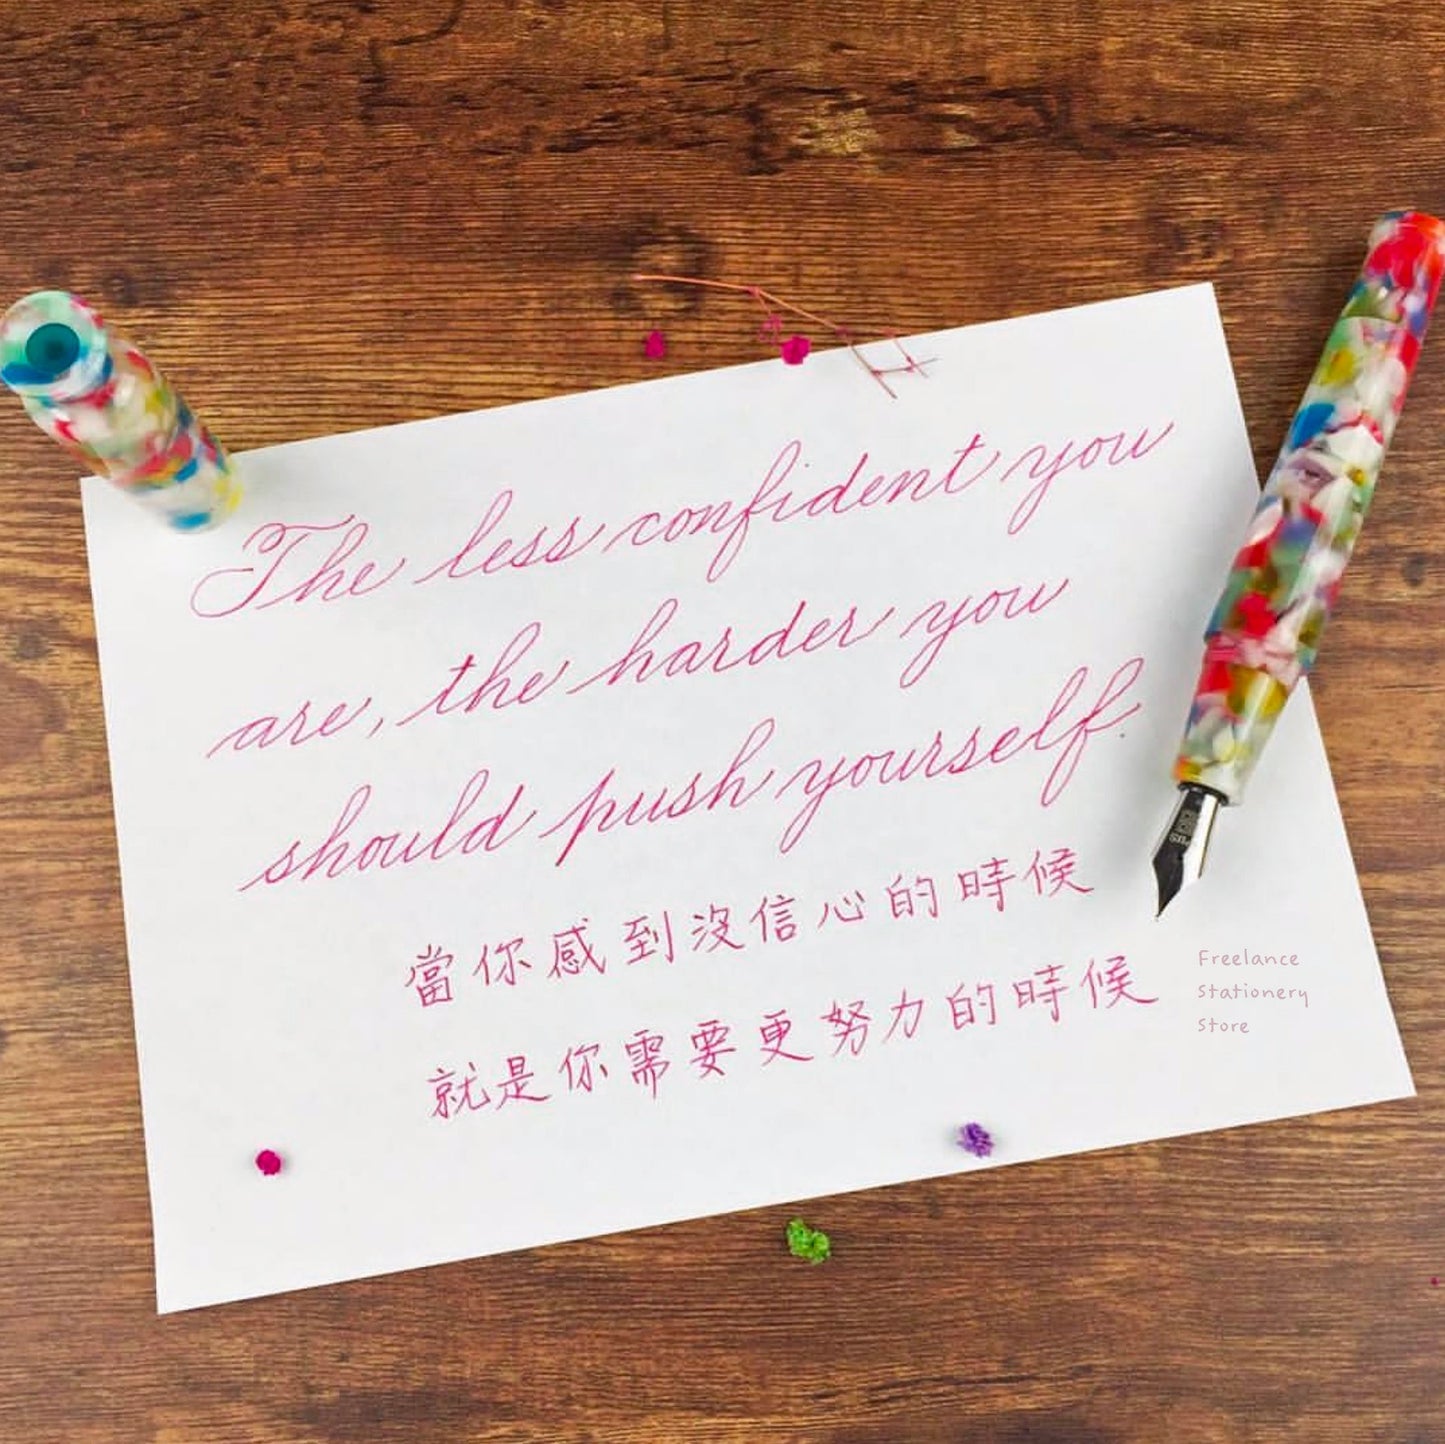 The less confident you
are, the harder you
should push yourself.
當你感到沒信心的時候
就是你需要更努力的時候
Freelance
Stationery
Store